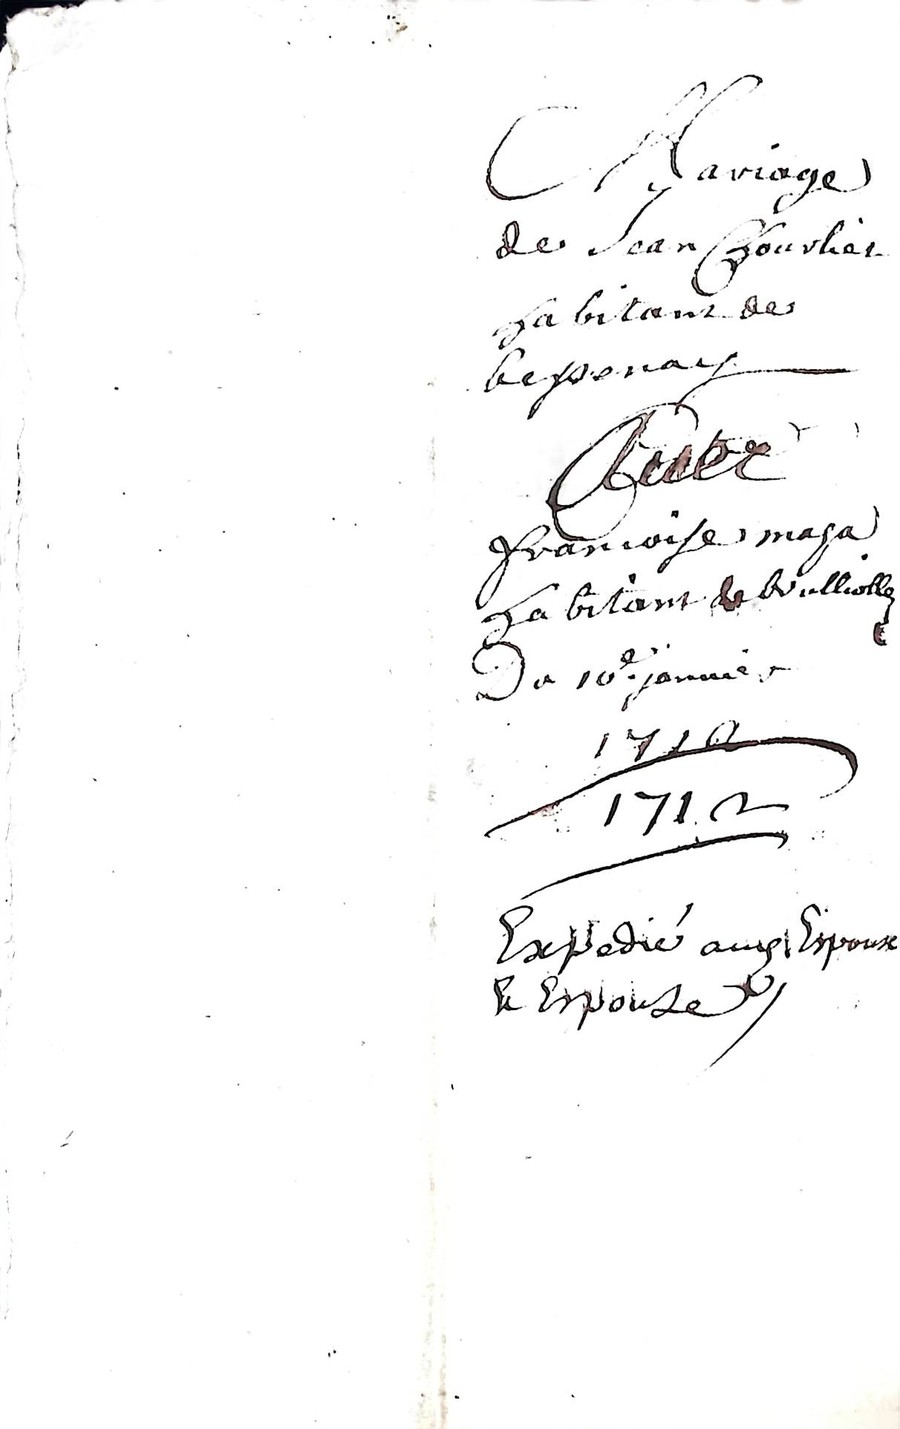 Mariage
de Jean Chourlier
habitant de
bessenay
Avec
francoise maga
habitant de brulliolle
Du 10e janvier
1712
1712
Expedié aux Espoux
& Espouse